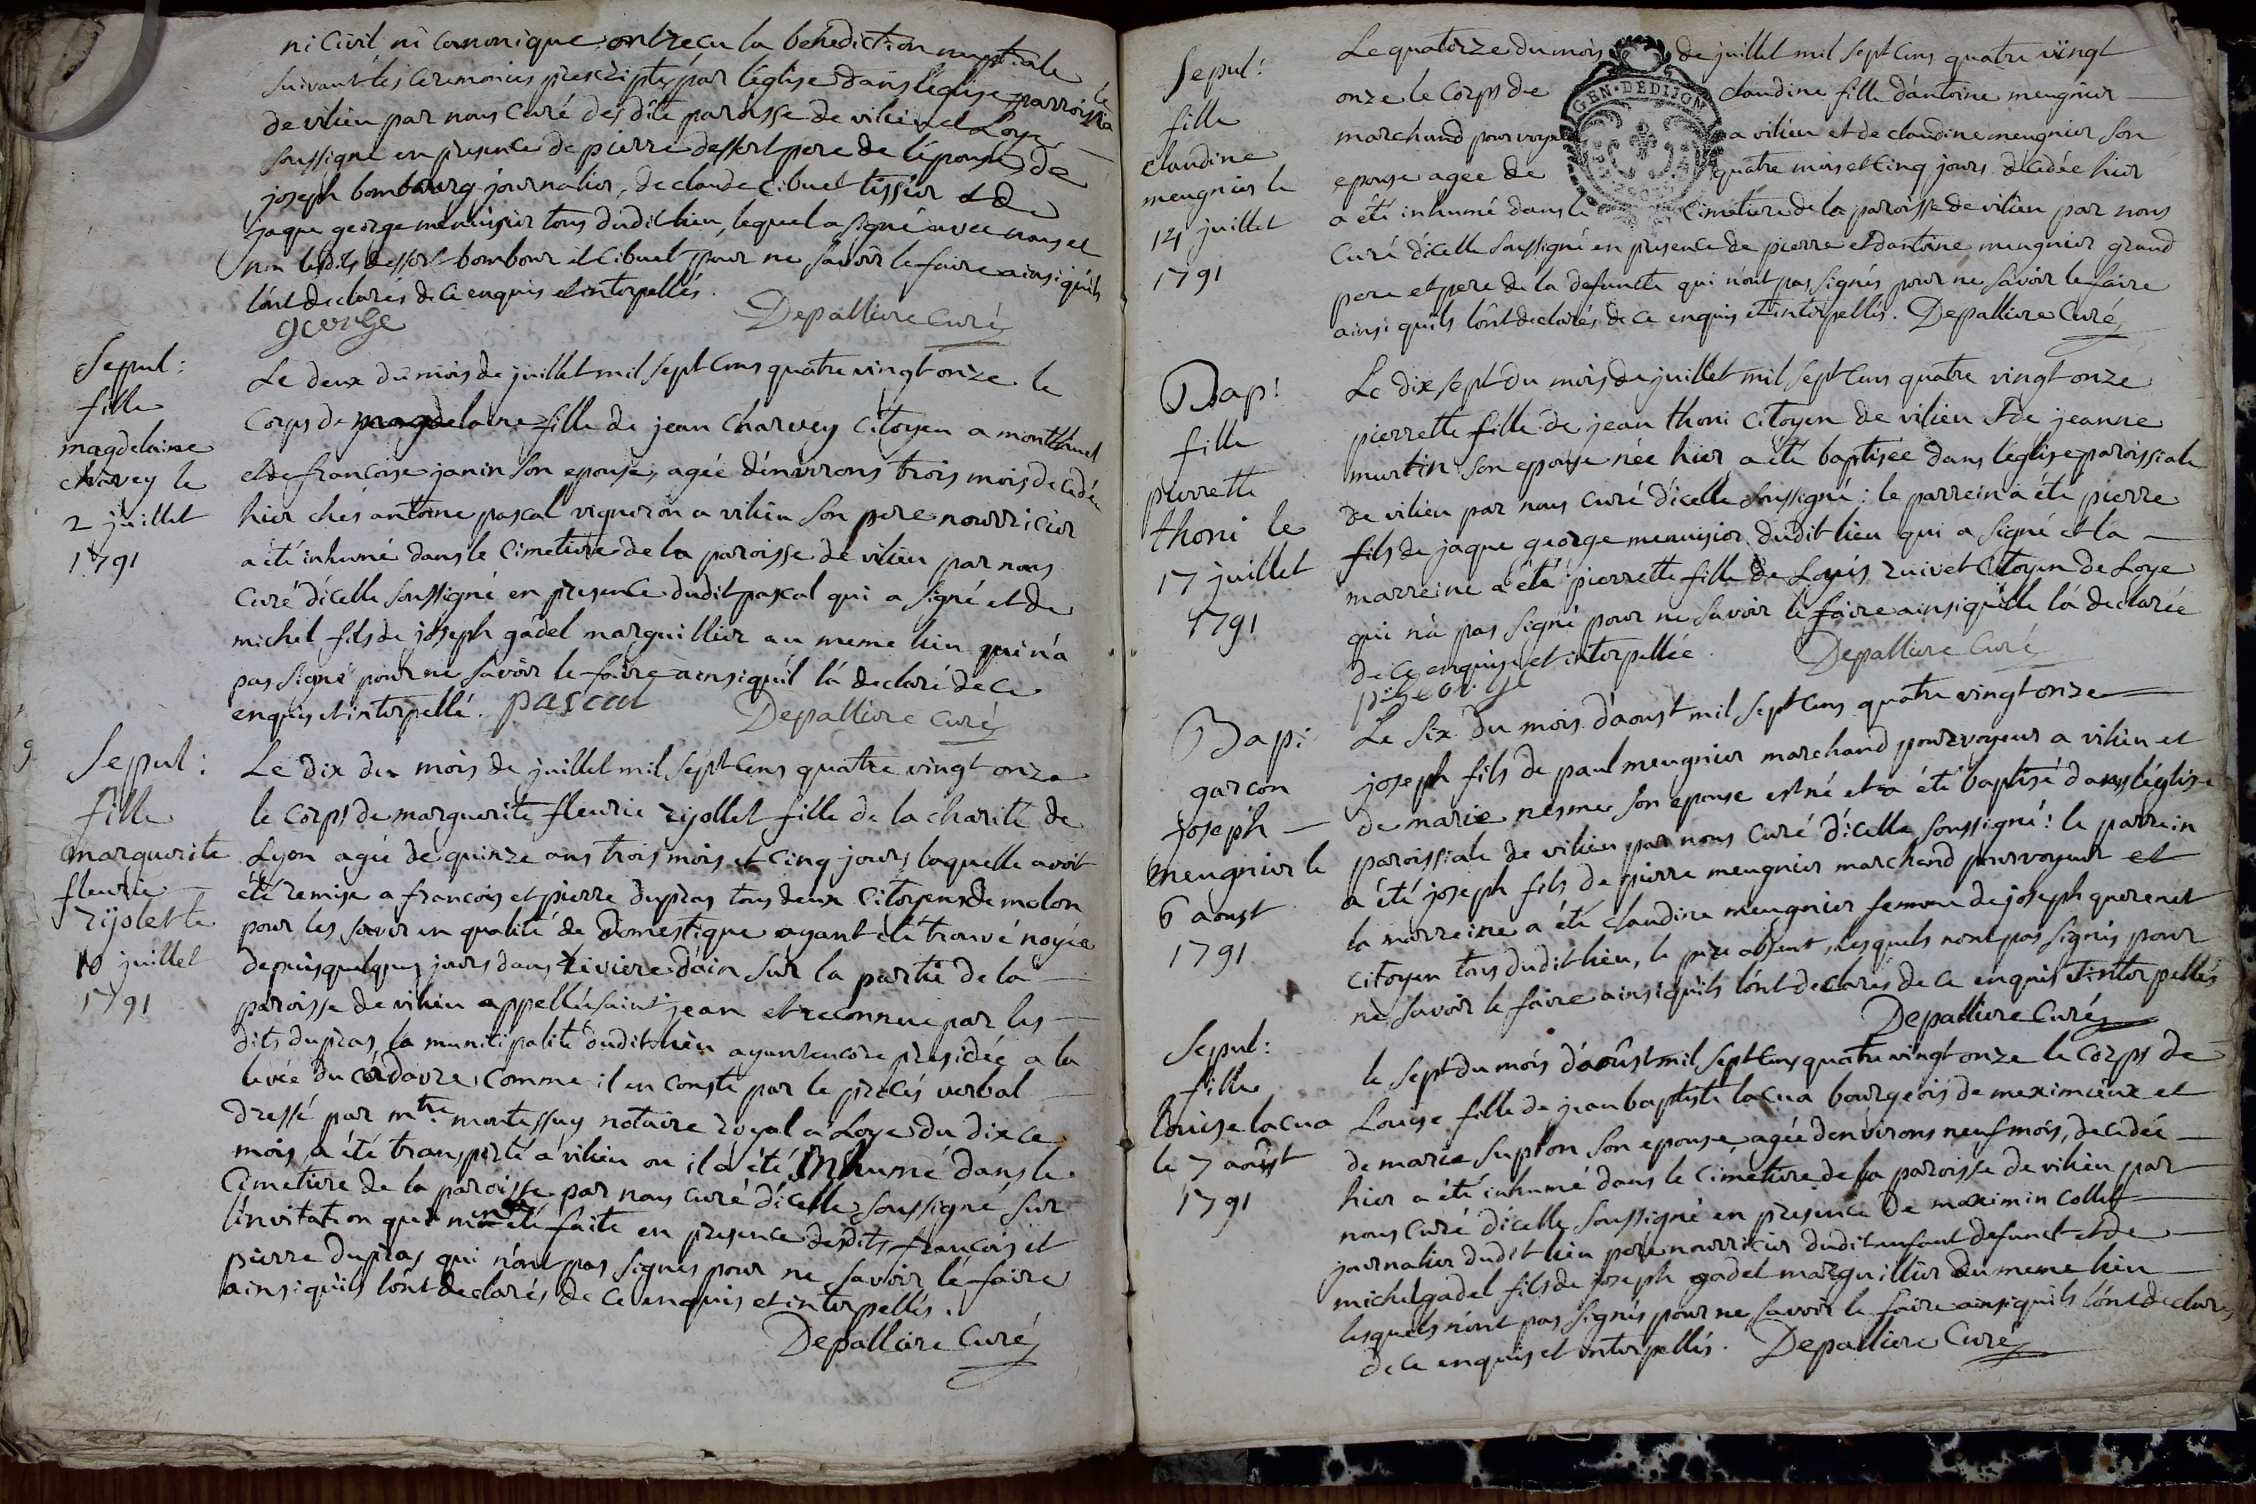 ni Civil ni Canonique, ont recu la benediction nuptiale
suivant les ceremonies prescriptes par l'église dans l'église parroissiale
de vilieu par nous Curé des dite paroisse de vilieu et Loye
soussigné en presence de pierre dessort pere de l'épouse, de
joseph bombourg journalier, de claude Cibuet tissier et de
jaque george menuisier tous dudit lieu, lequel a signé avec nous et
non lesdits dessort bombour et Cibuet pour ne savoir le faire ainsi quils
l'ont declarés de ce enquis et interpellés.
george Depalliere Curé
Sepul:
fille
magdelaine
charvey le
2 juillet
1791
Le deux du mois de juillet mil sept cens quatre vingt onze le
Corps de magdelaine fille de jean Charvey Citoyen a montluel
et de francoise janin son epouse, agée d'environs trois mois decedée
hier chés antoine pascal vigneron a vilieu son pere nourricier
a été inhumé dans le Cimetiere de la paroisse de vilieu par nous
Curé d'icelle soussigné en presence dudit pascal qui a signé et de
michel fils de joseph gadel marguillier au meme lieu qui n'a
pas signé pour ne savoir le faire ainsi qu'il l'a declaré de ce
enquis et interpellé. pascal Depalliere Curé
Sepul:
fille
marguerite
fleurie
rijolet le
10 juillet
1791
Le dix du mois de juillet mil sept cens quatre vingt onze
le corps de marguerite fleurie rijollet fille de la charité de
Lyon agée de quinze ans trois mois et cinq jours laquelle avoit
été remise a francois et pierre dupras tous deux Citoyens de molon
pour les servir en qualité de domestique ayant été trouvé noyée
depuis quelques jours dans riviere d'ain sur la partie de la
paroisse de vilieu appellée saint jean et reconnue par les
dits dupras, la municipalité dudit lieu ayant encore presidée a la
levée du cadavre, comme il en conste par le procés verbal
dressé par mtre montessuy notaire royal a Loye du dix ce
mois, a été transporté a vilieu ou il a été inhumé dans le
Cimetiere de la paroisse par nous curé d'icelle soussigné sur
l'invitation qui m'en a été faite en presence desdits francois et
pierre dupras qui n'ont pas signés pour ne savoir le faire
ainsi qu'ils l'ont declarés de ce enquis et interpellés.
Depalliere Curé
Sepul:
fille
claudine
meugnier le
14 juillet
1791
Le quatorze du mois de juillet mil sept cens quatre vingt
onze le Corps de claudine fille d'antoine meugnier
marchand pourvoyeur a vilieu et de claudine meugnier son
epouse agée de quatre mois et cinq jours decedée hier
a été inhumé dans le cimetiere de la paroisse de vilieu par nous
Curé d'icelle soussigné en presence de pierre et d'antoine meugnier grand
pere et pere de la defuncte qui n'ont pas signés pour ne savoir le faire
ainsi qu'ils l'ont declarés de ce enquis et interpellés. Depalliere Curé
GEN·DE DIJON
Bap:
fille
pierrette
thoni le
17 juillet
1791
Le dix sept du mois de juillet mil sept cens quatre vingt onze
pierrette fille de jean thoni citoyen de vilieu et de jeanne
martin son epouse née hier a été baptisée dans l'église paroissiale
de vilieu par nous curé d'icelle soussigné: le parrein a été pierre
fils de jaque george menuisier dudit lieu qui a signé et la
marreine a été pierrette fille de Louis ruivet Citoyen de Loye
qui n'a pas signé pour ne savoir le faire ainsi qu'elle l'a declarée
de ce enquise et interpellée. Depalliere Curé
p: george
Bap:
garcon
joseph
meugnier le
6 aoust
1791
Le six du mois d'aoust mil sept cens quatre vingt onze
joseph fils de paul meugnier marchand pourvoyeur a vilieu et
de marie nesme son epouse est né et a été baptisé dans l'église
paroissiale de vilieu par nous curé d'icelle soussigné: le parrein
a été joseph fils de pierre meugnier marchand pourvoyeur et
la marreine a été claudine meugnier femme de joseph querenet
citoyen tous dudit lieu, le pere absent, lesquels n'ont pas signés pour
ne savoir le faire ainsi qu'ils l'ont declarés de ce enquis et interpellés
Depalliere Curé
Sepul:
fille
louise lacua
le 7 août
1791
le sept du mois d'août mil sept cens quatre vingt onze le corps de
Louise fille de jean baptiste lacua bourgeois de meximieux et
de marie supton son epouse agée d'environs neuf mois, decedée
hier a été inhumé dans le cimetiere de la paroisse de vilieu par
nous curé d'icelle soussigné en presence de maximin collet
journalier dudit lieu pere nourricier dudit enfant defunct et de
michel gadel fils de joseph gadel marguillier du meme lieu
lesquels n'ont pas signés pour ne savoir le faire ainsi qu'ils l'ont declarés
de ce enquis et interpellés. Depalliere Curé